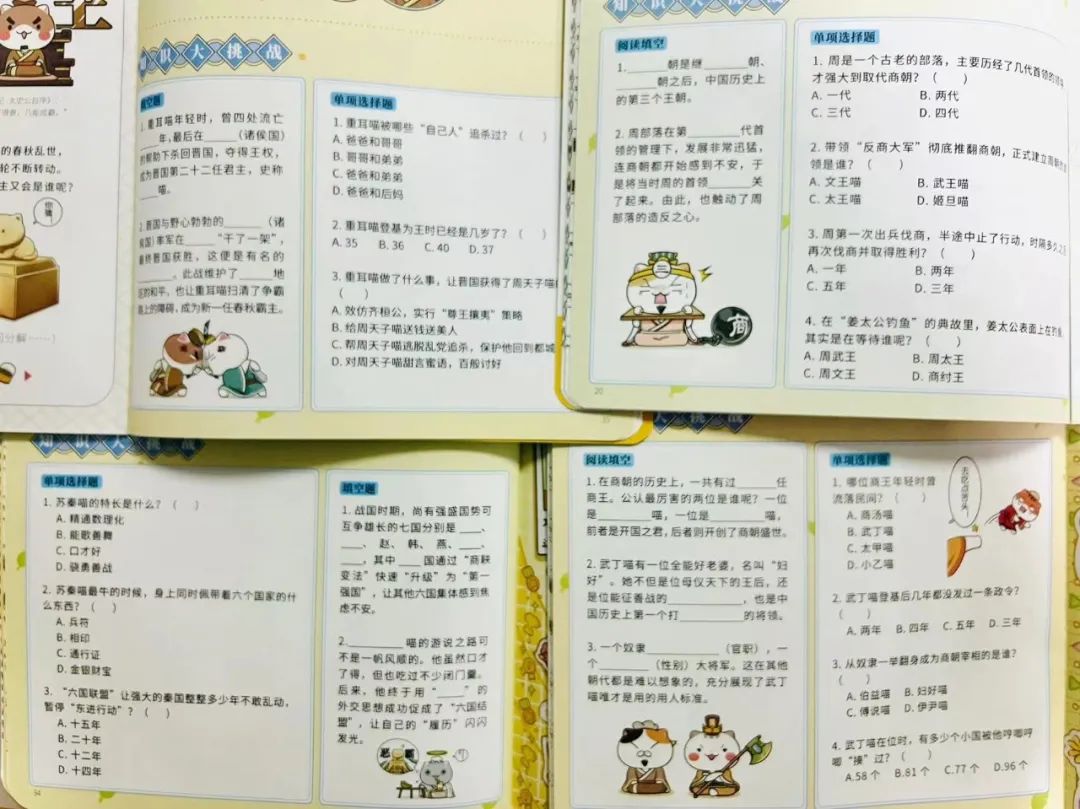 知识大挑战
填空题
1. 重耳喵年轻时，曾四处流亡
年,最后在______(诸侯国)
的帮助下杀回晋国，夺得王权，
成为晋国第二十二任君主，史称
______喵。
2. 晋国与野心勃勃的______(诸
侯国)率军在______“干了一架”，
最终晋国获胜，这便是有名的
______。此战维护了______地
区的和平，也让重耳喵扫清了争霸
路上的障碍，成为新一任春秋霸主。
单项选择题
1. 重耳喵被哪些“自己人”追杀过？（ ）
A. 爸爸和哥哥
B. 哥哥和弟弟
C. 爸爸和弟弟
D. 爸爸和后妈
2. 重耳喵登基为王时已经是几岁了？（ ）
A. 35 B. 36 C. 40 D. 37
3. 重耳喵做了什么事，让晋国获得了周天子喵
（ ）
A. 效仿齐桓公，实行“尊王攘夷”策略
B. 给周天子喵送钱送美人
C. 帮周天子喵逃脱乱党追杀，保护他回到都城
D. 对周天子喵甜言蜜语，百般讨好
的春秋乱世，
轮不断转动。
主又会是谁呢？
你猜。
知识大挑战
阅读填空
1. ______朝是继______朝、
______朝之后，中国历史上
的第三个王朝。
2. 周部落在第______代首
领的管理下，发展非常迅猛，
连商朝都开始感到不安，于
是将当时周的首领______关
了起来。由此，也触动了周
部落的造反之心。
商
20
单项选择题
1. 周是一个古老的部落，主要历经了几代首领的
才强大到取代商朝？（ ）
A. 一代 B. 两代
C. 三代 D. 四代
2. 带领“反商大军”彻底推翻商朝，正式建立周朝的
领是谁？（ ）
A. 文王喵 B. 武王喵
C. 太王喵 D. 姬旦喵
3. 周第一次出兵伐商，半途中止了行动，时隔多久之
再次伐商并取得胜利？（ ）
A. 一年 B. 两年
C. 五年 D. 三年
4. 在“姜太公钓鱼”的典故里，姜太公表面上在钓鱼，
其实是在等待谁呢？（ ）
A. 周武王 B. 周太王
C. 周文王 D. 商纣王
知识大挑战
单项选择题
1. 苏秦喵的特长是什么？（ ）
A. 精通数理化
B. 能歌善舞
C. 口才好
D. 骁勇善战
2. 苏秦喵最牛的时候，身上同时佩带着六个国家的什
么东西？（ ）
A. 兵符
B. 相印
C. 通行证
D. 金银财宝
3. “六国联盟”让强大的秦国整整多少年不敢乱动，
暂停“东进行动”？（ ）
A. 十五年
B. 二十年
C. 十二年
D. 十四年
94
填空题
1. 战国时期，尚有强盛国势可
互争雄长的七国分别是____、
____、赵、韩、燕、____、
____，其中____国通过“商鞅
变法”快速“升级”为“第一
强国”，让其他六国集体感到焦
虑不安。
2.______喵的游说之路可
不是一帆风顺的。他虽然口才
了得，但也吃过不少闭门羹。
后来，他终于用“____”的
外交思想成功促成了“六国结
盟”，让自己的“履历”闪闪
发光。
大挑战
阅读填空
1. 在商朝的历史上，一共有过______任
商王。公认最厉害的两位是谁呢？一位
是______喵，一位是______喵，
前者是开国之君，后者则开创了商朝盛世。
2. 武丁喵有一位全能好老婆，名叫“妇
好”。她不但是位母仪天下的王后，还
是位能征善战的______，也是中
国历史上第一个打______的将领。
3. 一个奴隶______（官职），一
个______（性别）大将军。这在其他
朝代都是难以想象的，充分展现了武丁
喵唯才是用的用人标准。
单项选择题
1. 哪位商王年轻时曾
流落民间？（ ）
A. 商汤喵
B. 武丁喵
C. 太甲喵
D. 小乙喵
去吃点苦头。
2. 武丁喵登基后几年都没发过一条政令？
（ ）
A. 两年 B. 四年 C. 五年 D. 三年
3. 从奴隶一举翻身成为商朝宰相的是谁？
（ ）
A. 伯益喵 B. 妇好喵
C. 傅说喵 D. 伊尹喵
4. 武丁喵在位时，有多少个小国被他哼唧哼
唧“揍”过？（ ）
A.58 个 B.81 个 C.77 个 D.96 个